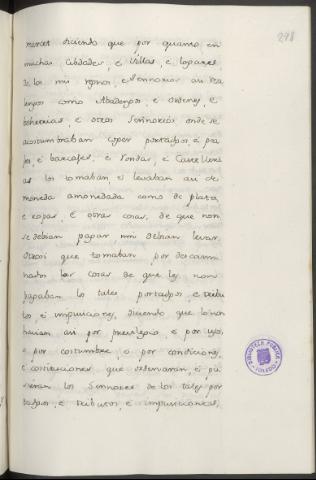 248
merced diciendo que por quanto en
muchas Cibdades, e Villas, e logares,
de los mis regnos, e Sennorios asi Rea
lengos como Abadengos, e ordenes, e
behetrias e otros Señorios onde se
acostumbraban coger portadgos, e pea
jes e barcajes, e rondas, e Castellerias
as los tomaban, e levaban asi de
moneda amonedada como de plata,
e ropas, e otras cosas, de que non
se debian pagar, nin debian levar,
otrosi que tomaban por descami
nados las cosas de que les non
pagaban los tales portadgos, e tribu
tos e imposiciones, diciendo que lo non
havian asi por previlegio, e por uso,
e por costumbre, o por condiciones,
e constituciones que ordenaran, e pu
sieran los Sennores de los tales por
tadgos, e tributos, e imposiciones,
BIBLIOTECA PUBLICA
TOLEDO